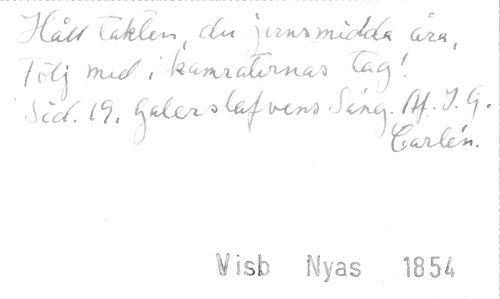 Håll takten, du jernsmidda åra,
Följ med i kamraternas tag!
Sid. 19. Galerslafvens Sång. Af. J. G.
Carlén.
Visb Nyas 1854